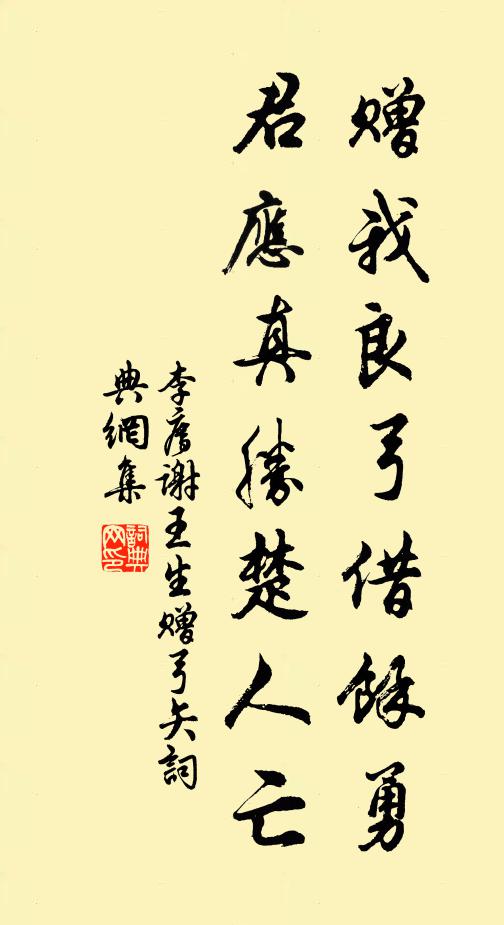 赠我良弓借餘勇
君應真勝楚人亡
李廌谢王生赠弓矢詞
典網集
詞典網印